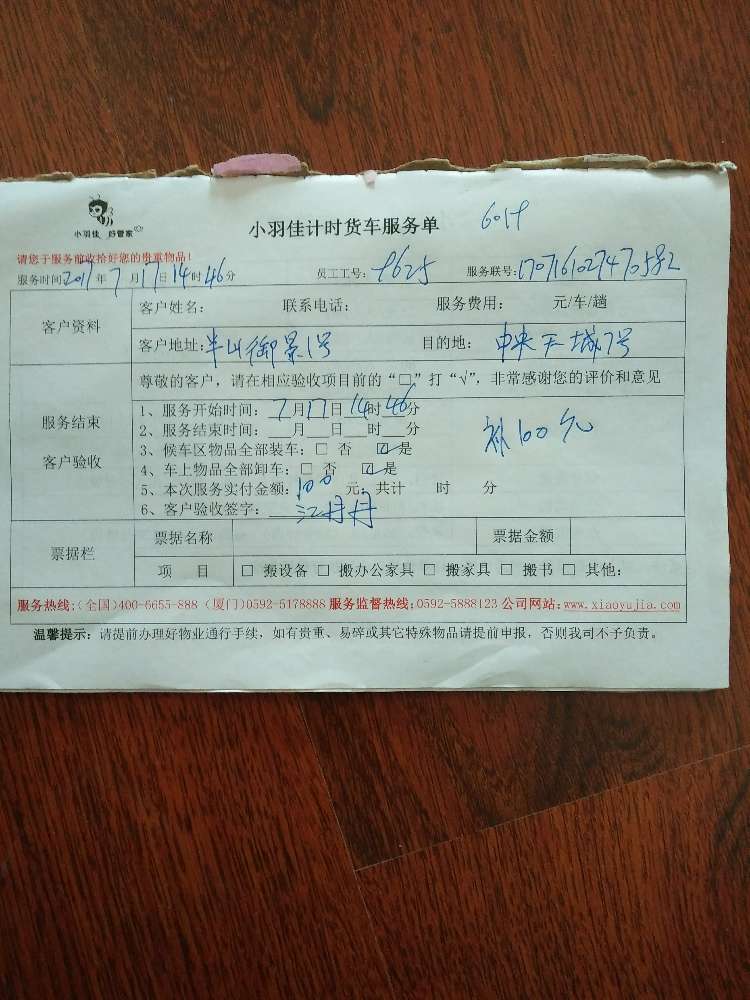 小羽佳 好管家
小羽佳计时货车服务单 6019
请您于服务前收拾好您的贵重物品!
服务时间2017年7月17日14时46分 员工工号: 9625 服务联号:1707161027470582
客户资料
客户姓名: 联系电话: 服务费用: 元/车/趟
客户地址:半山御景1号 目的地: 中央天城7号
服务结束
客户验收
尊敬的客户,请在相应验收项目前的“□”打“√”,非常感谢您的评价和意见
1、服务开始时间: 7月17日14时46分
2、服务结束时间: 月 日 时 分
3、候车区物品全部装车: □ 否 ☑ 是
4、车上物品全部卸车: □ 否 ☑ 是
5、本次服务实付金额: 100 元,共计 时 分
6、客户验收签字: 江丹丹
补100元
票据栏
票据名称 票据金额
项 目 □ 搬设备 □ 搬办公家具 □ 搬家具 □ 搬书 □ 其他:
服务热线:(全国)400-6655-888 (厦门)0592-5178888 服务监督热线:0592-5888123 公司网站:www.xiaoyujia.com
温馨提示:请提前办理好物业通行手续,如有贵重、易碎或其它特殊物品请提前申报,否则我司不予负责。